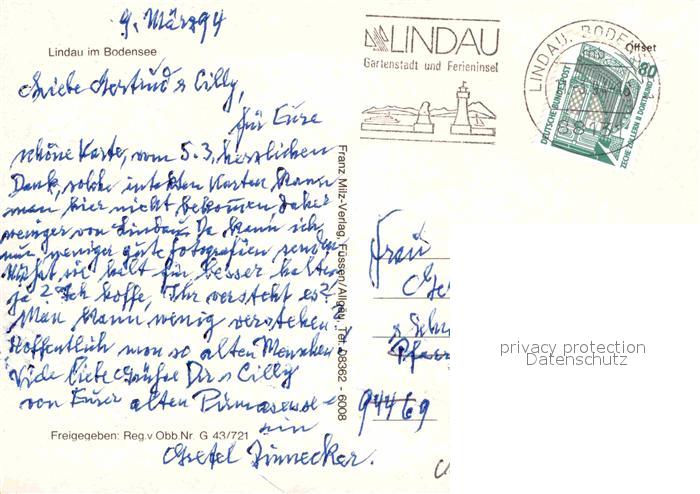 9. März 94
Lindau im Bodensee
Liebe Gertrud & Cilly,
für Eure
schöne Karte, vom 5.3. herzlichen
Dank, solche intakten Karten kann
man hier nicht bekommen daher
weniger von Lindau. Da kann ich
nur weniger gute Fotografien senden
für besser halten
ja? Ich hoffe, Ihr versteht es?
Man kann wenig verstehen
Hoffentlich von so alten Menschen
Viele liebe Grüße Dir & Cilly
von Eurer alten
Gretel Zinnecker.
Freigegeben: Reg.v.Obb.Nr. G 43/721
Franz Milz-Verlag, Füssen/Allgäu, Tel. 08362 - 6008
LINDAU
Gartenstadt und Ferieninsel
LINDAU, BODENSEE
Offset
80
DEUTSCHE BUNDESPOST
ZECHE ZOLLERN II DORTMUND
Frau
Ge
& Schw
Pfarr
94469
privacy protection
Datenschutz